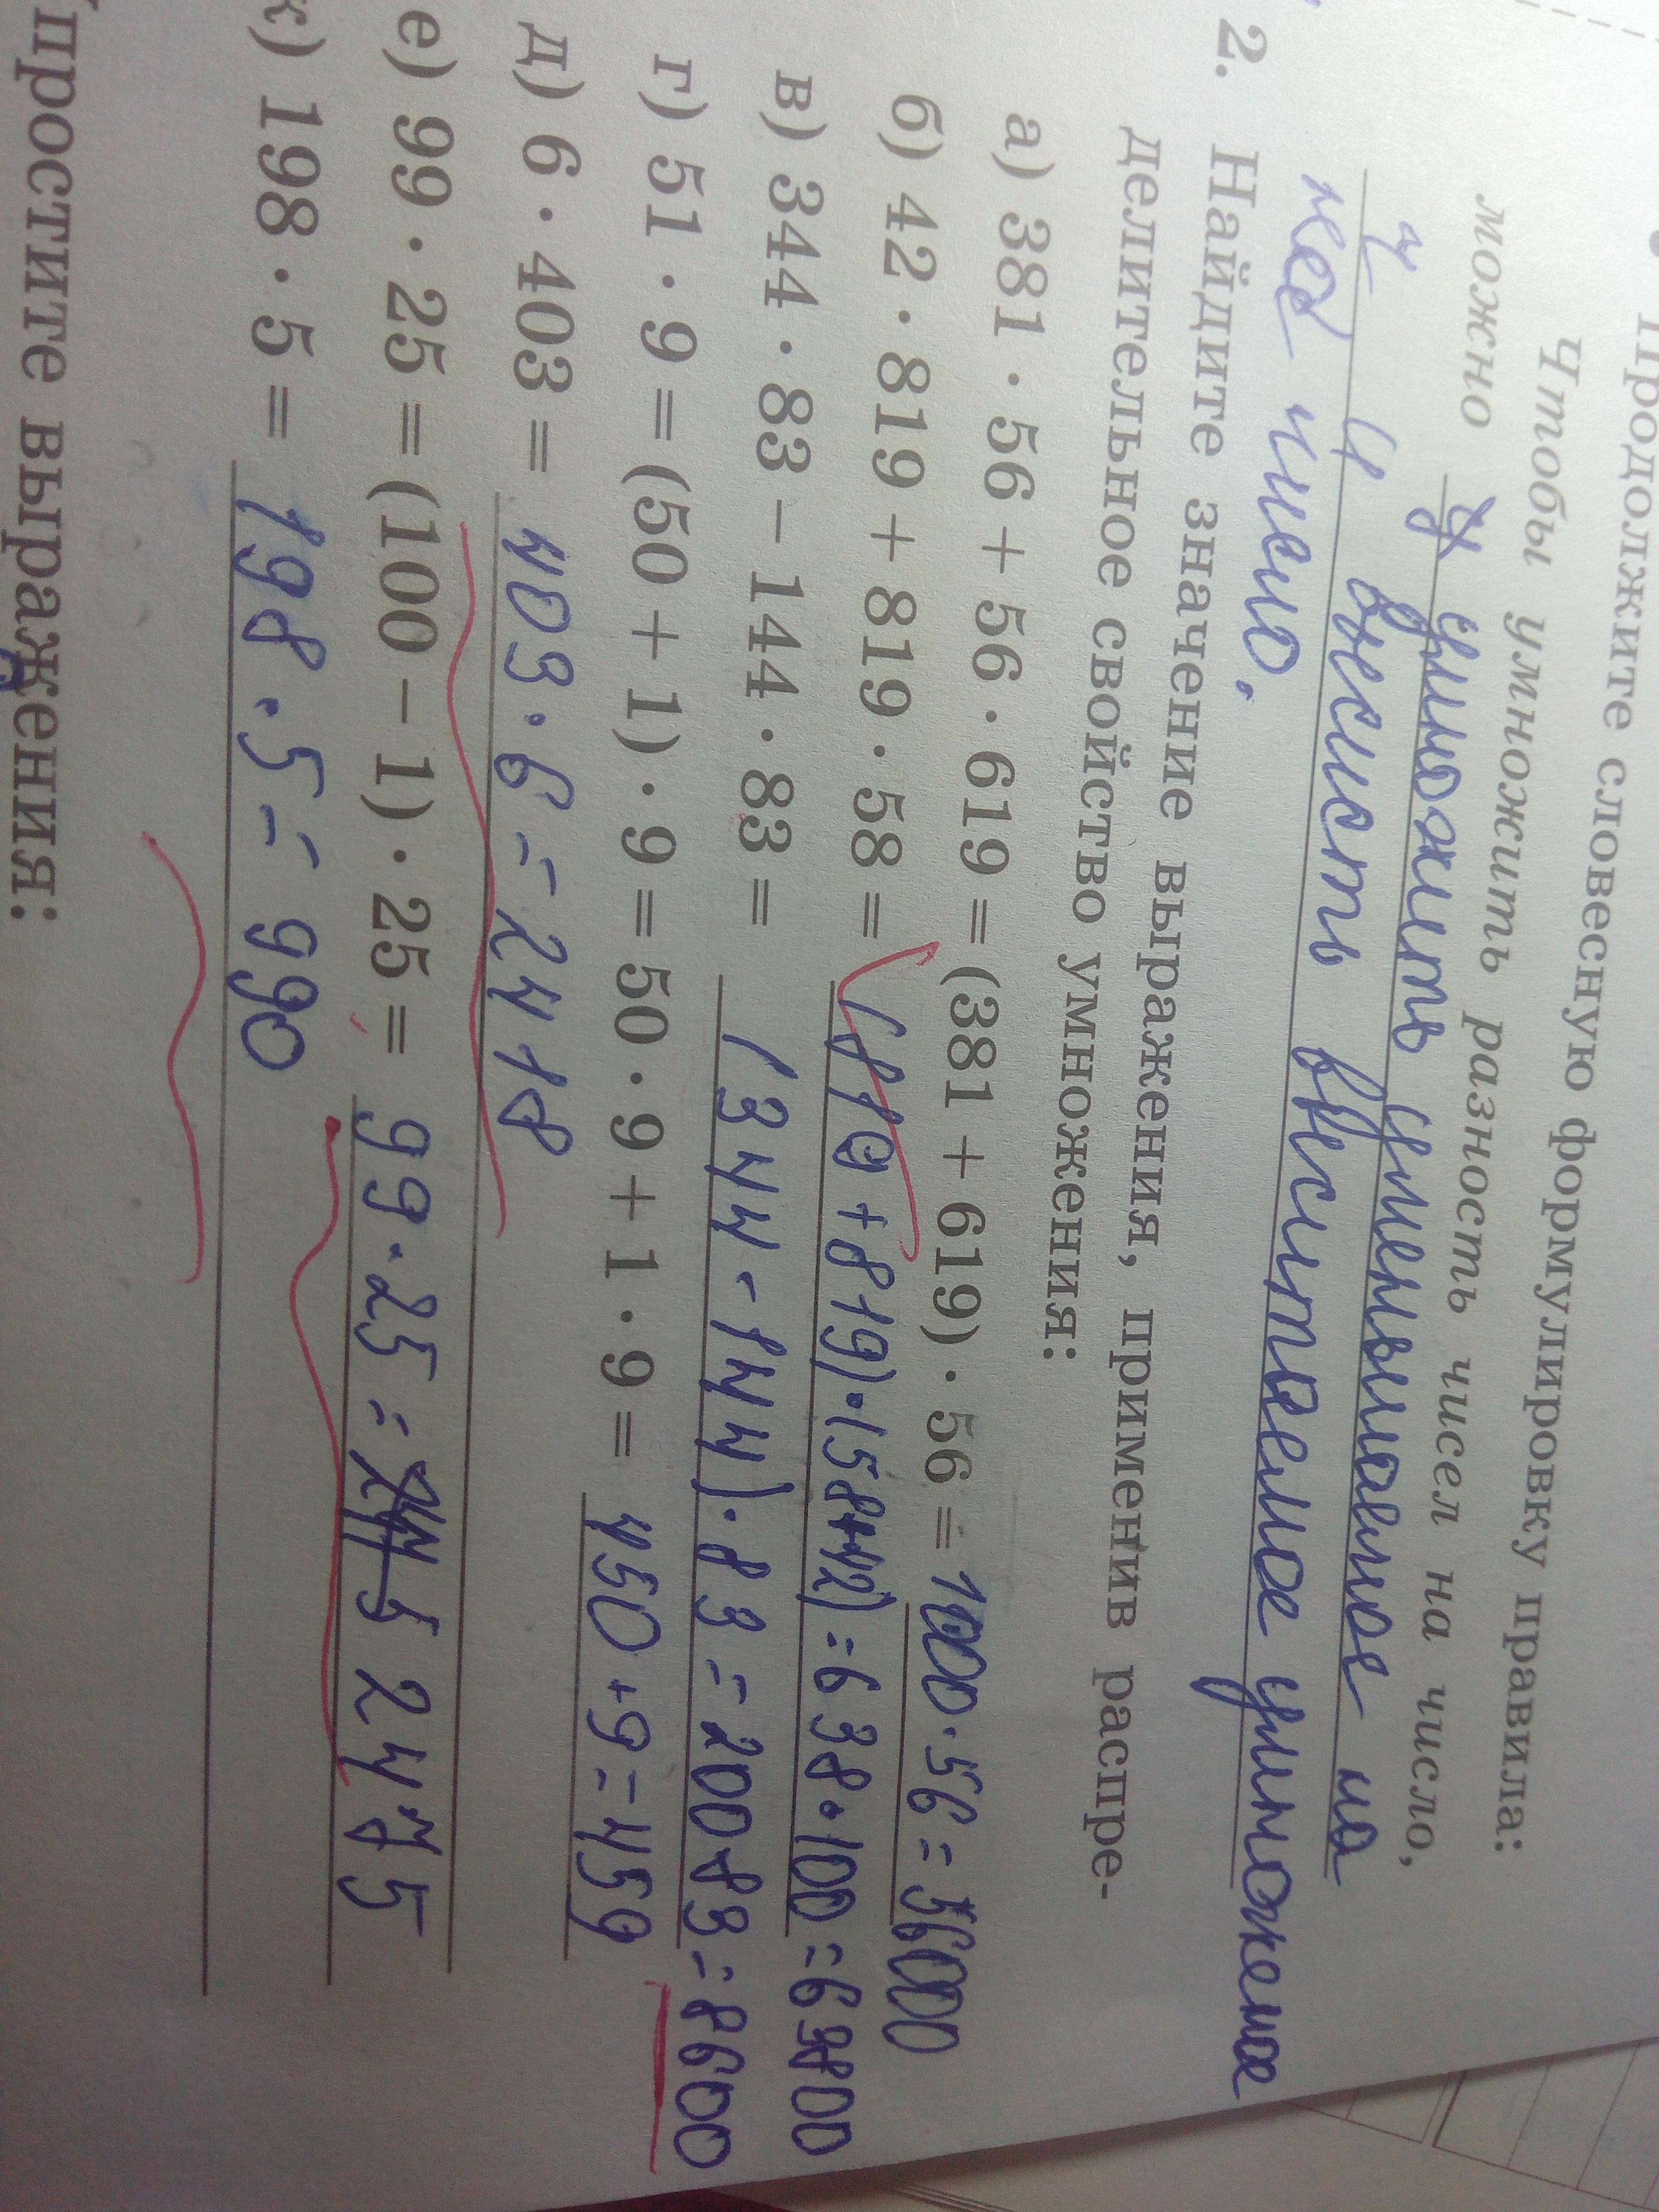 Продолжите словесную формулировку правила:
Чтобы умножить разность чисел на число,
можно умножить уменьшаемое на
и вычесть вычитаемое умножемое
число.
2. Найдите значение выражения, применив распре-
делительное свойство умножения:
а) 381 · 56 + 56 · 619 = (381 + 619) · 56 = 1000 · 56 = 56000
б) 42 · 819 + 819 · 58 = + 819) · (58+42) = 638 · 100 = 63800
в) 344 · 83 − 144 · 83 = (344 - 144) · 83 = 200 83 = 8600
г) 51 · 9 = (50 + 1) · 9 = 50 · 9 + 1 · 9 = 450 + 9 = 459
д) 6 · 403 = 403 · 6 = 2418
е) 99 · 25 = (100 − 1) · 25 = 99 · 25 = 2475
ж) 198 · 5 = 198 · 5 = 990
простите выражения: